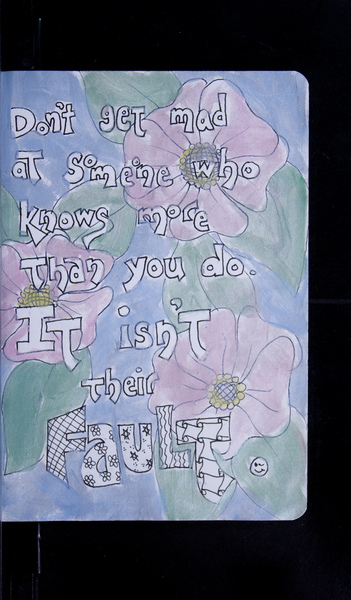 Don't get mad
at someone who
knows more
Than you do.
IT isn't
their
FauLT